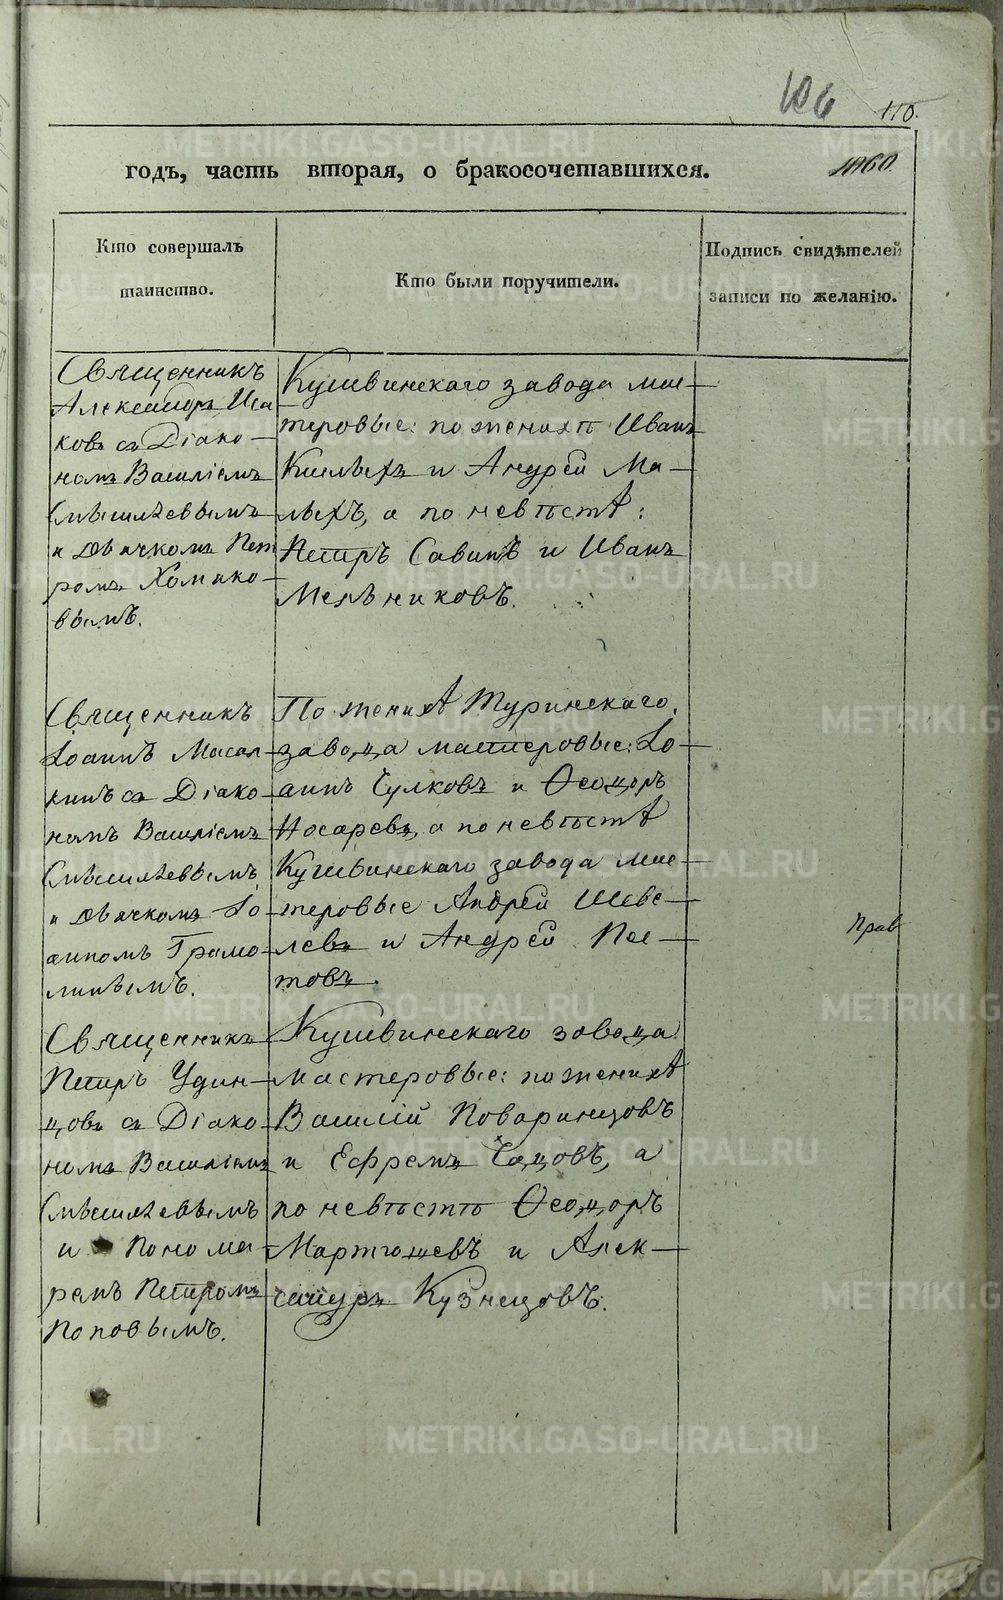 106
110.
годъ, часть вторая, о бракосочетавшихся.
1860
Кто совершалъ
таинство.
Кто были поручители.
Подпись свидѣтелей
записи по желанію.
Священникъ
Александръ Иса
ковъ съ Діако–
номъ Василіемъ
Смышляевымъ
и Дьячкомъ Пет
ромъ Хомяко–
вымъ.
Кушвинскаго завода мас–
теровые: по женихѣ Иванъ
Кислыхъ и Андрей Ма–
лыхъ, а по невѣстѣ:
Петръ Савинъ и Иванъ
Мельниковъ.
Священникъ
Іоаннъ Масал–
кинъ съ Діако–
номъ Василіемъ
Смышляевымъ
и Дьячкомъ Іо–
анномъ Грамо–
линымъ.
По женихѣ Туринскаго
завода мастеровые: Іо–
аннъ Чулковъ и Ѳеодоръ
Носаревъ, а по невѣстѣ
Кушвинскаго завода мас–
теровые Андрей Шеве–
левъ и Андрей Пос–
товъ.
Прав
Священникъ
Петръ Удин–
цовъ съ Діако–
номъ Василіемъ
Смышляевымъ
и Понома–
ремъ Петромъ
Поповымъ.
Кушвинскаго завода
мастеровые: по женихѣ
Василій Поваринцовъ
и Ефремъ Чадовъ, а
по невѣстѣ Ѳеодоръ
Мартюшевъ и Алек–
сандръ Кузнецовъ.
METRIKI.GASO-URAL.RU